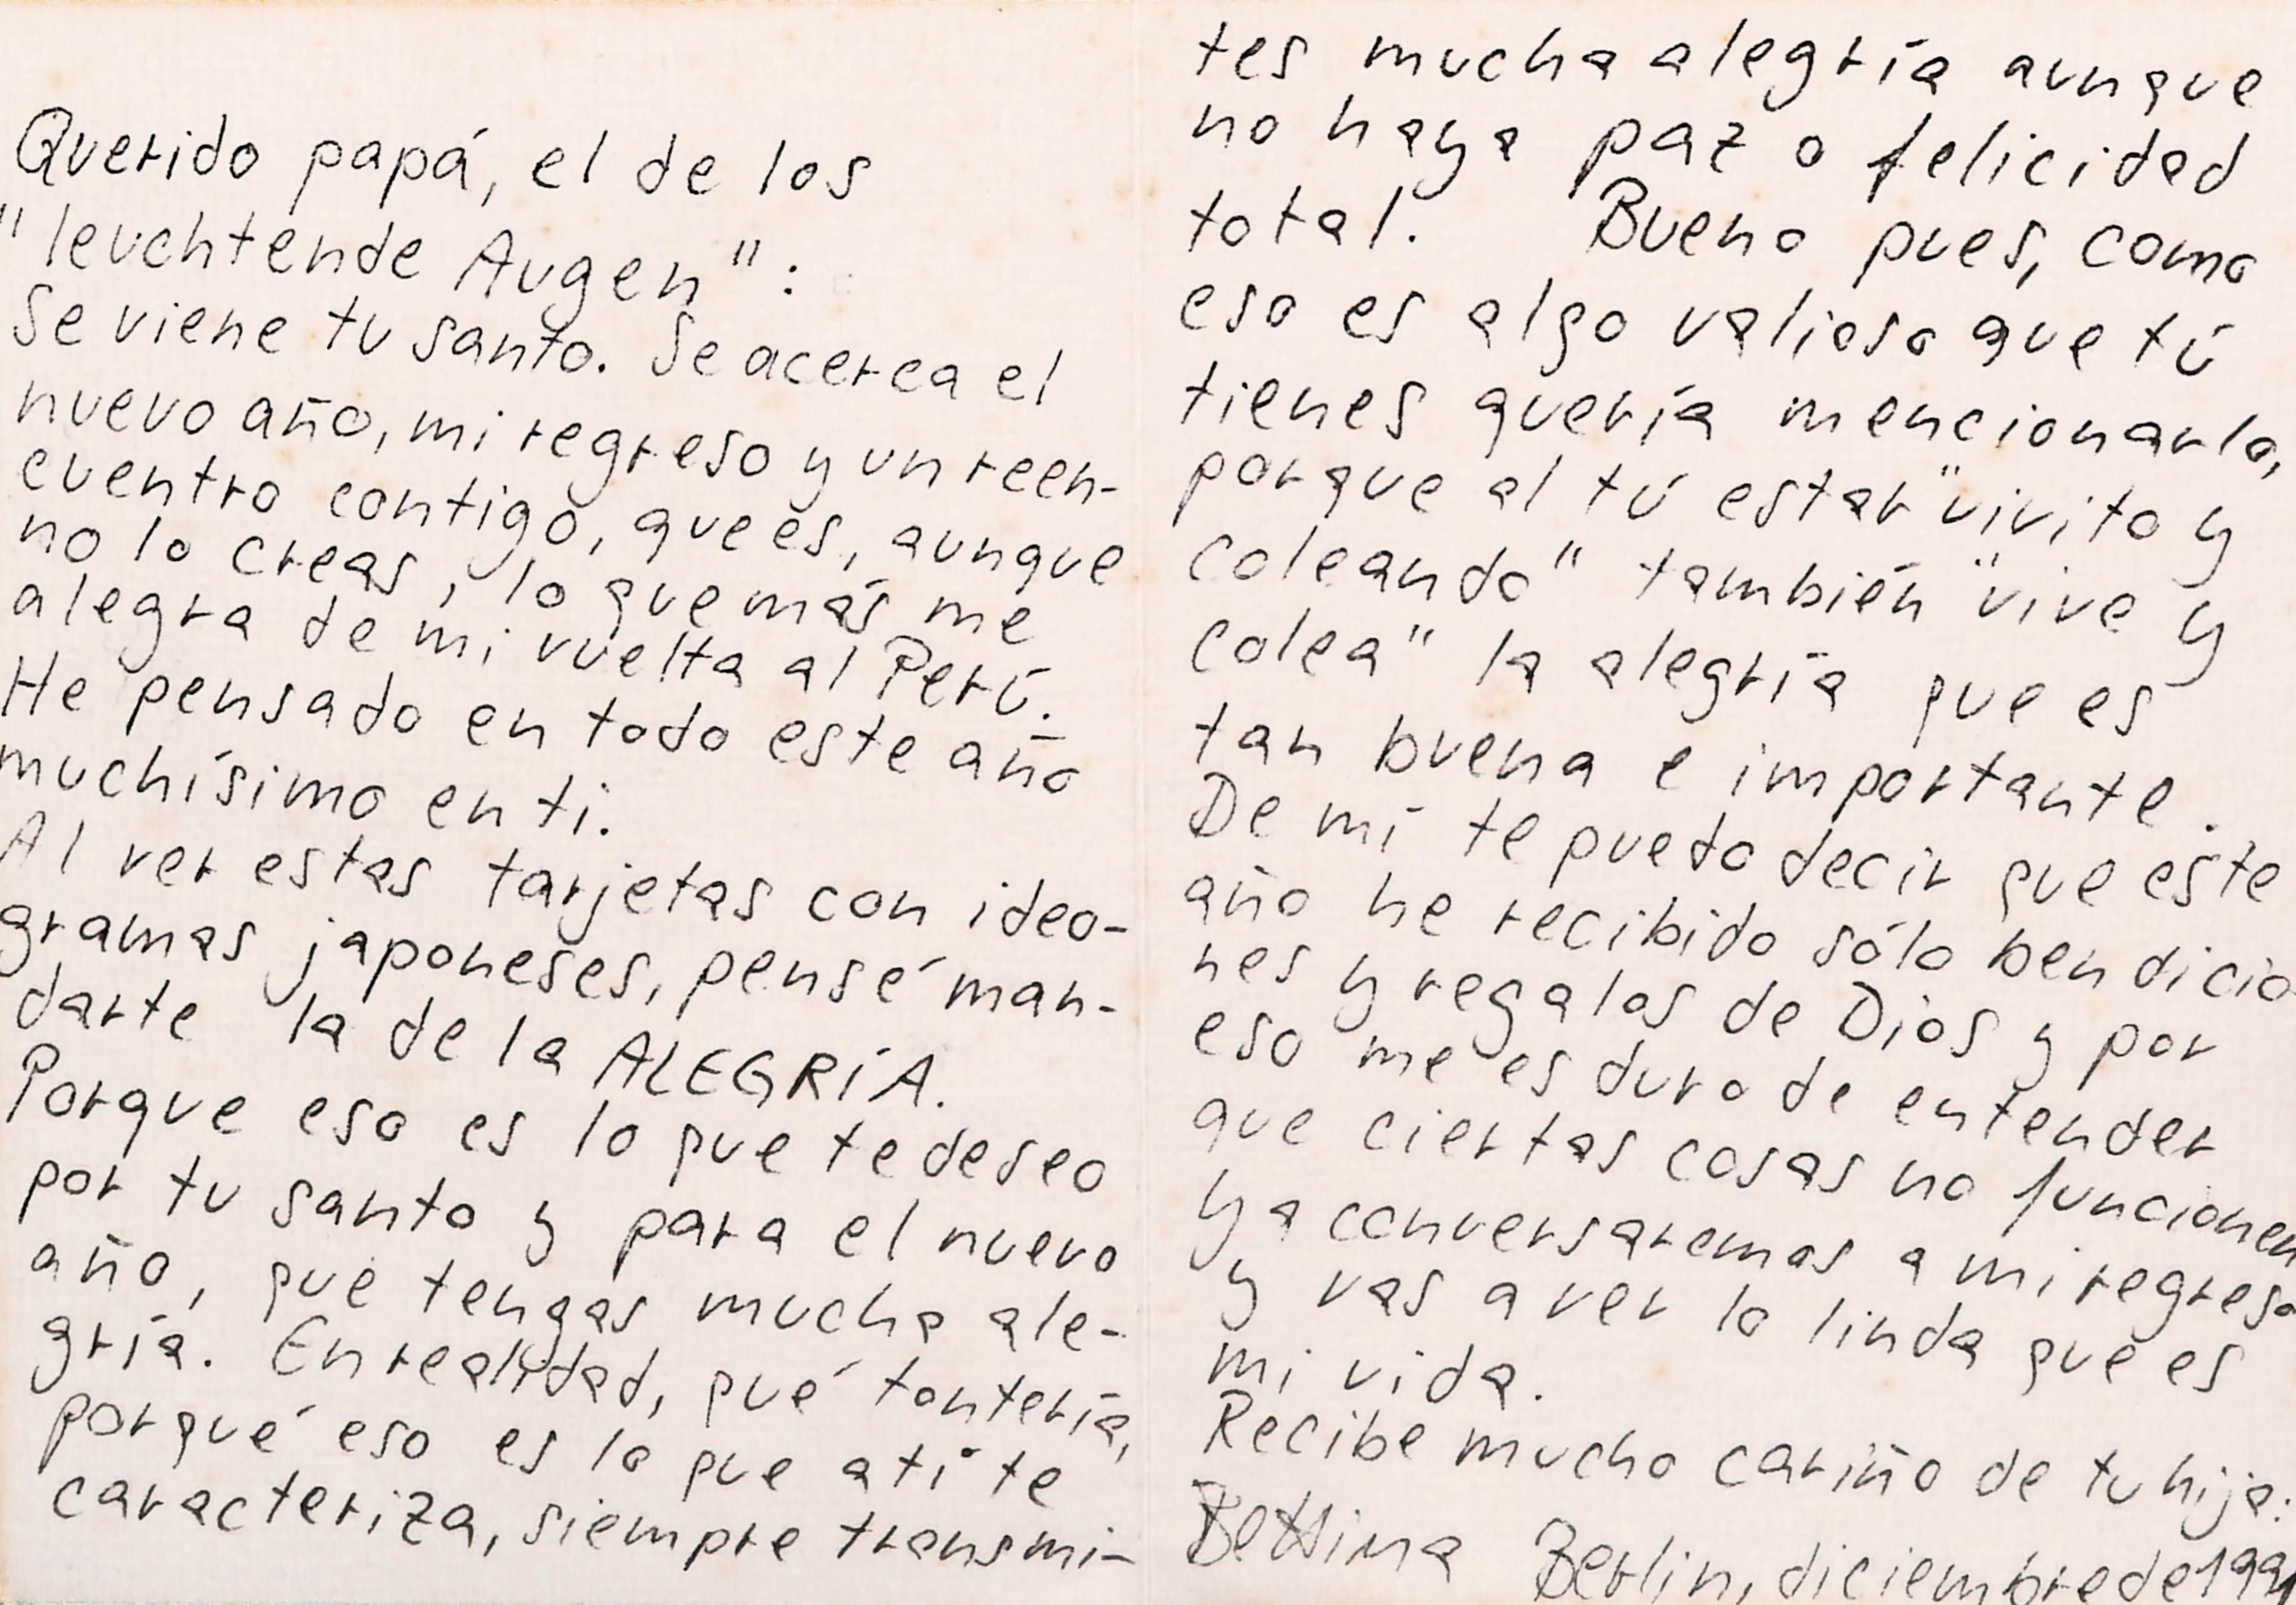 Querido papá, el de los
"leuchtende Augen":
Se viene tu santo. Se acerca el
nuevo año, mi regreso y un reen-
cuentro contigo, que es, aunque
no lo creas, lo que más me
alegra de mi vuelta al Perú.
He pensado en todo este año
muchísimo en ti.
Al ver estas tarjetas con ideo-
gramas japoneses, pensé man-
darte la de la ALEGRÍA.
Porque eso es lo que te deseo
por tu santo y para el nuevo
año, que tengas mucha ale-
gría. En realidad, qué tontería,
porqué eso es lo que a tí te
caracteriza, siempre transmi-
tes mucha alegría aunque
no haya paz o felicidad
total. Bueno pues, como
eso es algo valioso que tú
tienes quería mencionarlo,
porque al tú estar "vivito y
coleando" también "vive y
colea" la alegría que es
tan buena e importante.
De mí te puedo decir que este
año he recibido sólo bendicio
nes y regalos de Dios y por
eso me es duro de entender
que ciertas cosas no funcionen
Ya conversaremos a mi regreso
y vas a ver lo linda que es
mi vida.
Recibe mucho cariño de tu hija:
Bettina Berlin, diciembre de